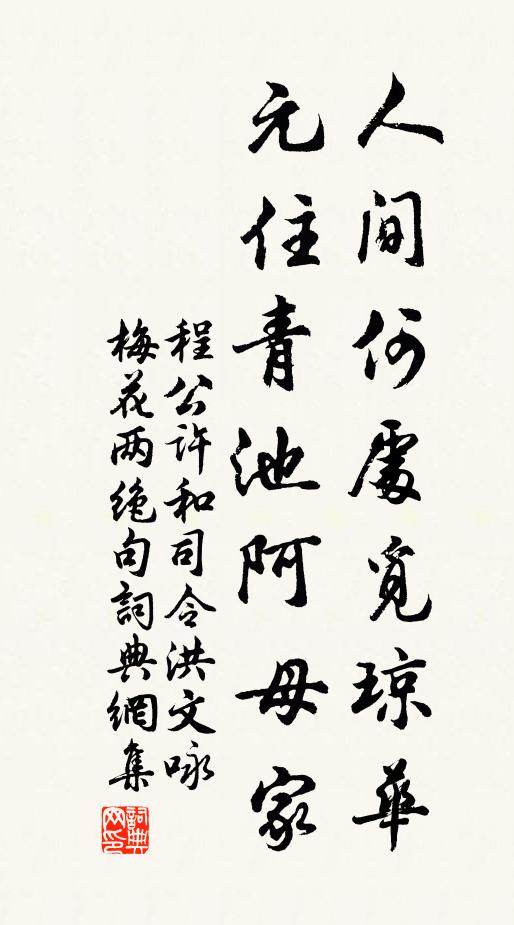 人间何處覓琼華
元住青池阿母家
程公许和司令洪文咏
梅花两绝句詞典網集
詞典网印